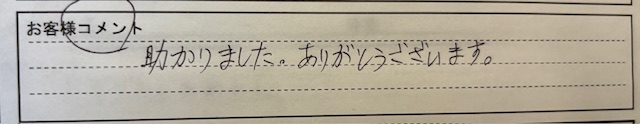 お客様コメント
助かりました。ありがとうございます。